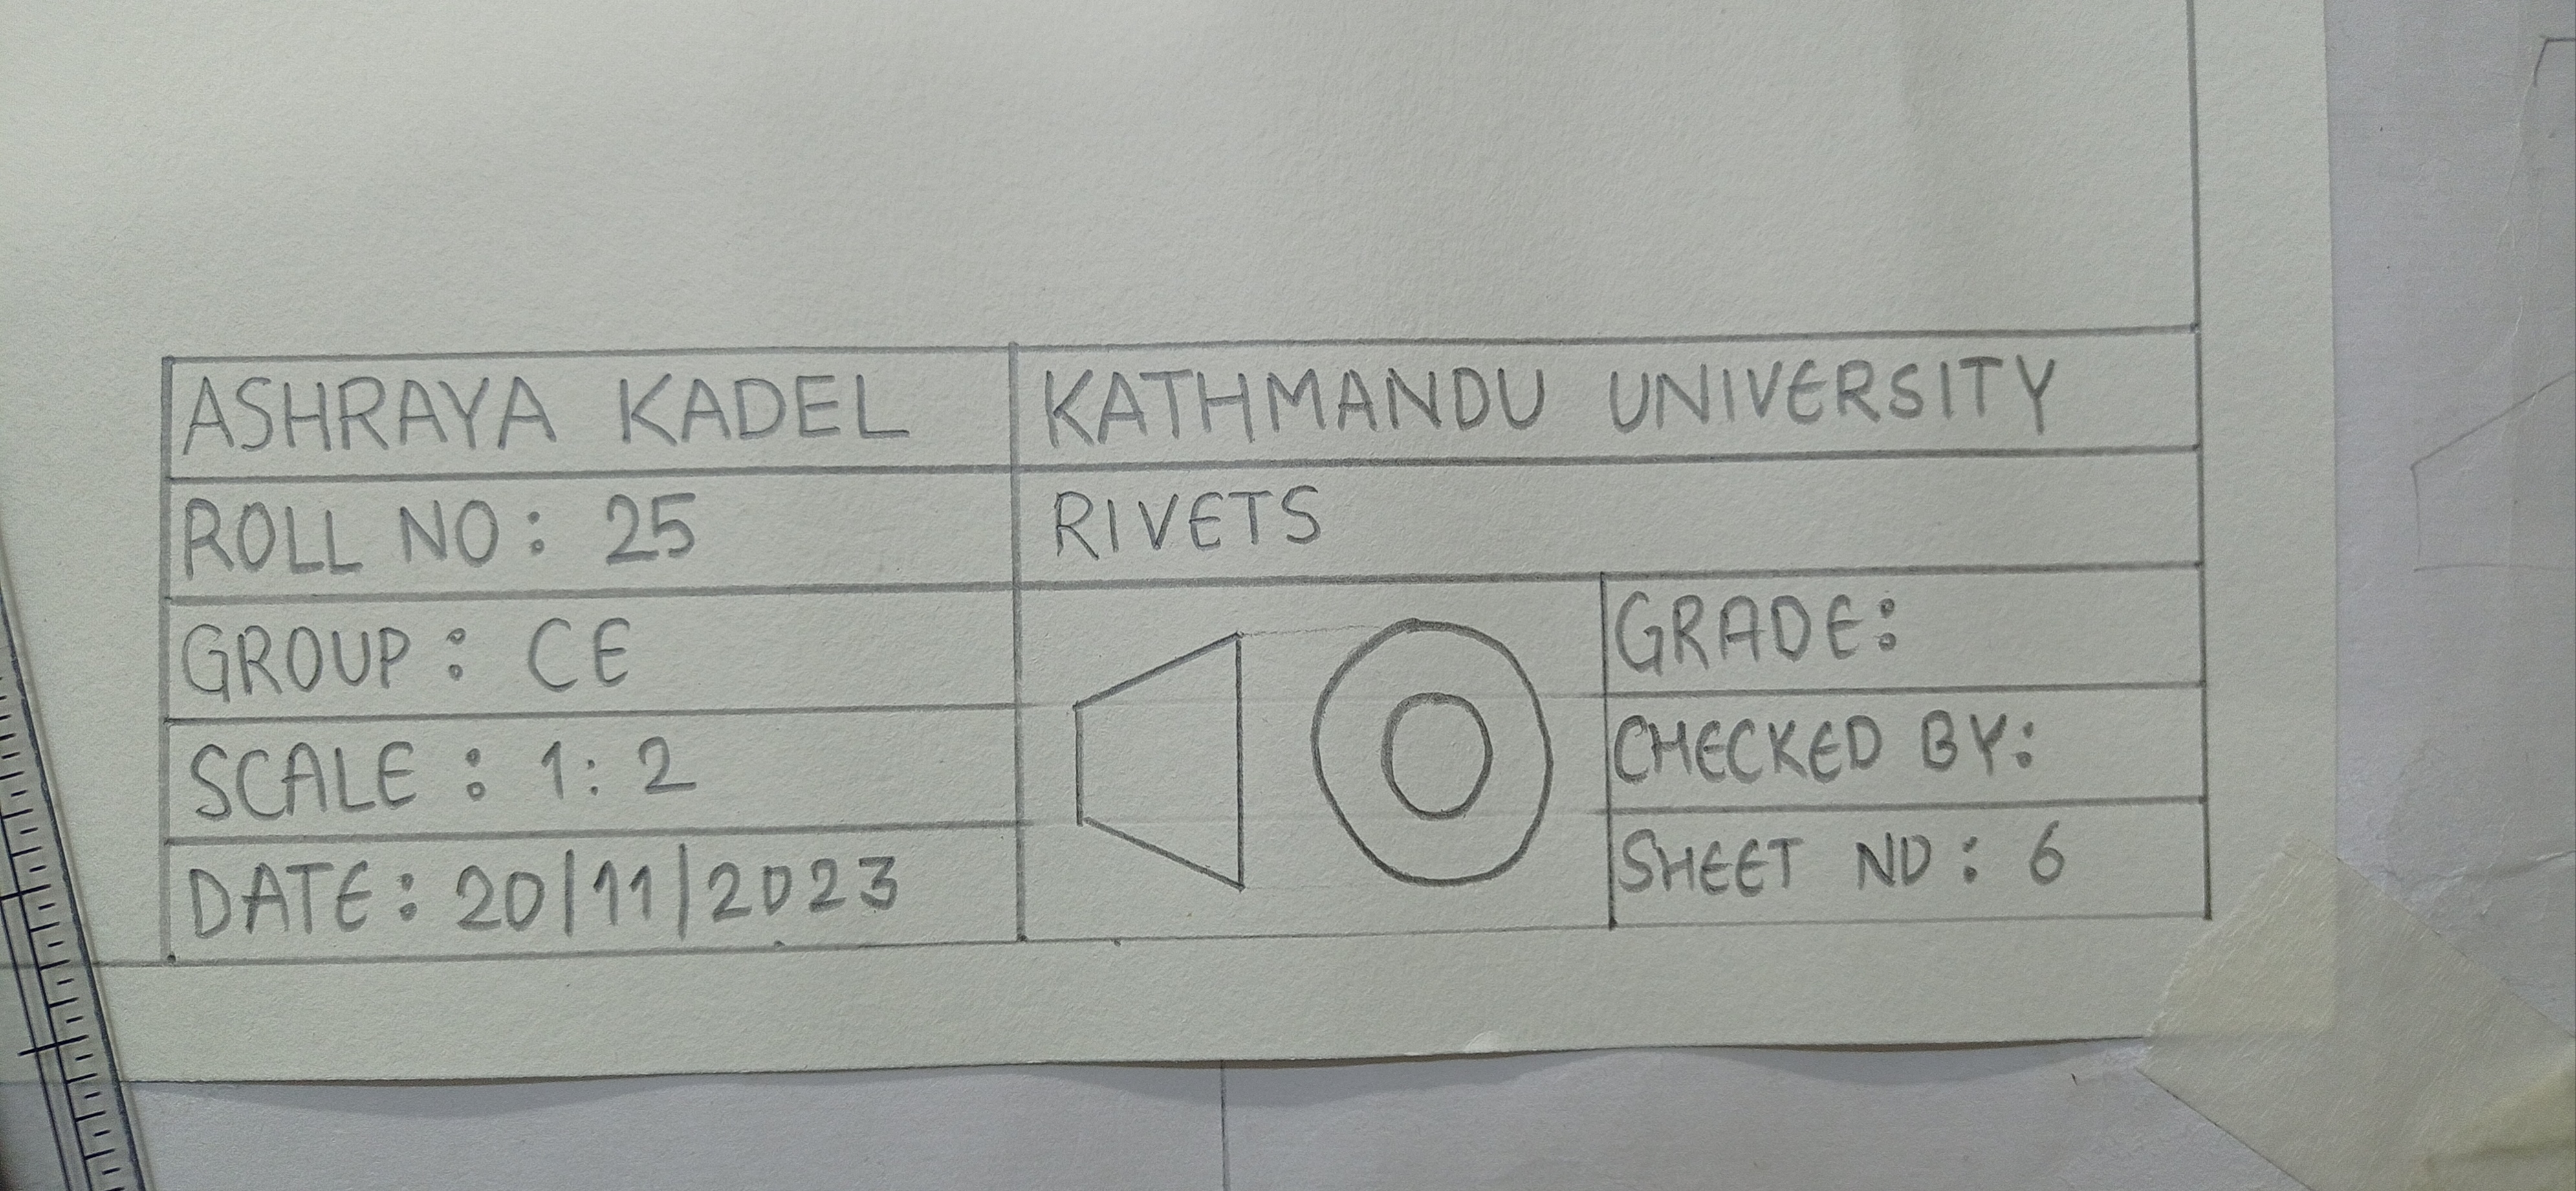 ASHRAYA KADEL
KATHMANDU UNIVERSITY
ROLL NO: 25
RIVETS
GROUP: CE
GRADE:
SCALE: 1:2
CHECKED BY:
DATE: 20/11/2023
SHEET NO: 6